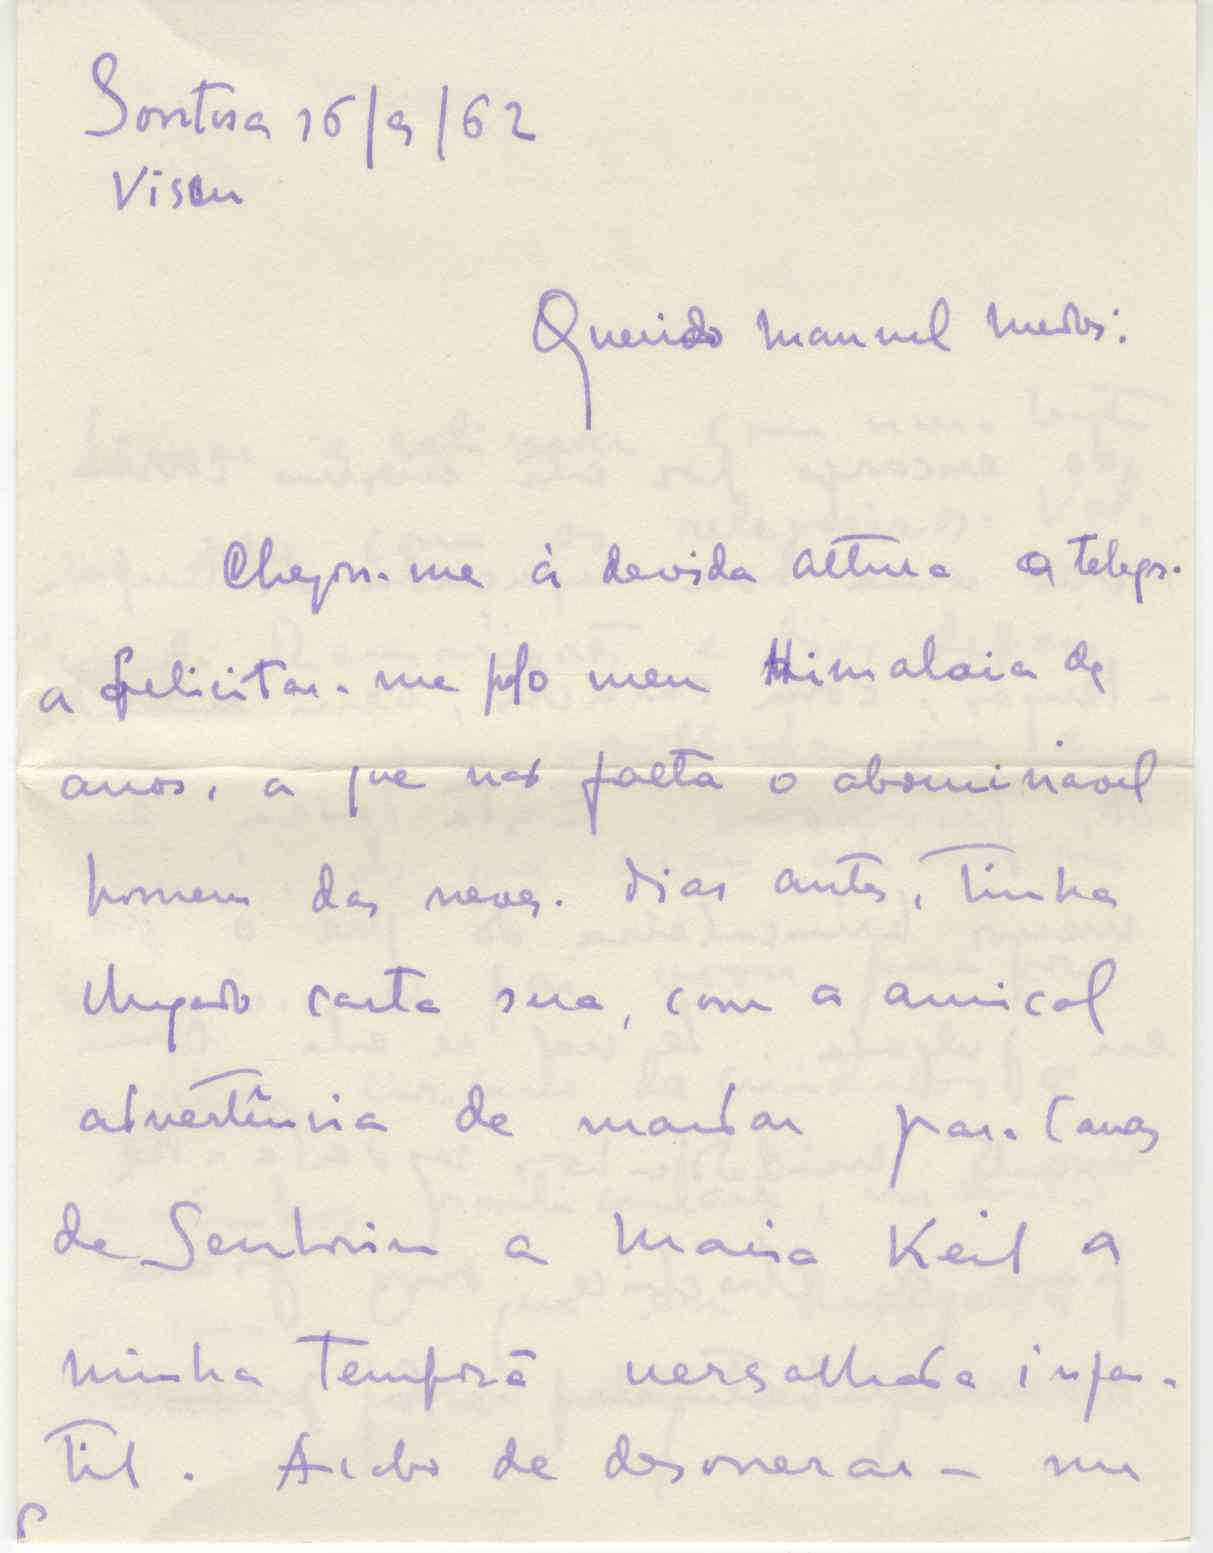 Sontosa 16/9/62
Viseu
Querido Manuel Mendes:
Chegou-me à devida altura o telegr.
a felicitar-me pelo meu Himalaia de
anos, a que não falta o abominável
homem das neves. Dias antes, tinha
chegado carta sua, com a amical
advertência de mandar para Canas
de Senhorim a Maria Keil a
minha temporã versalhada infan-
til. Acabo de desonerar-me